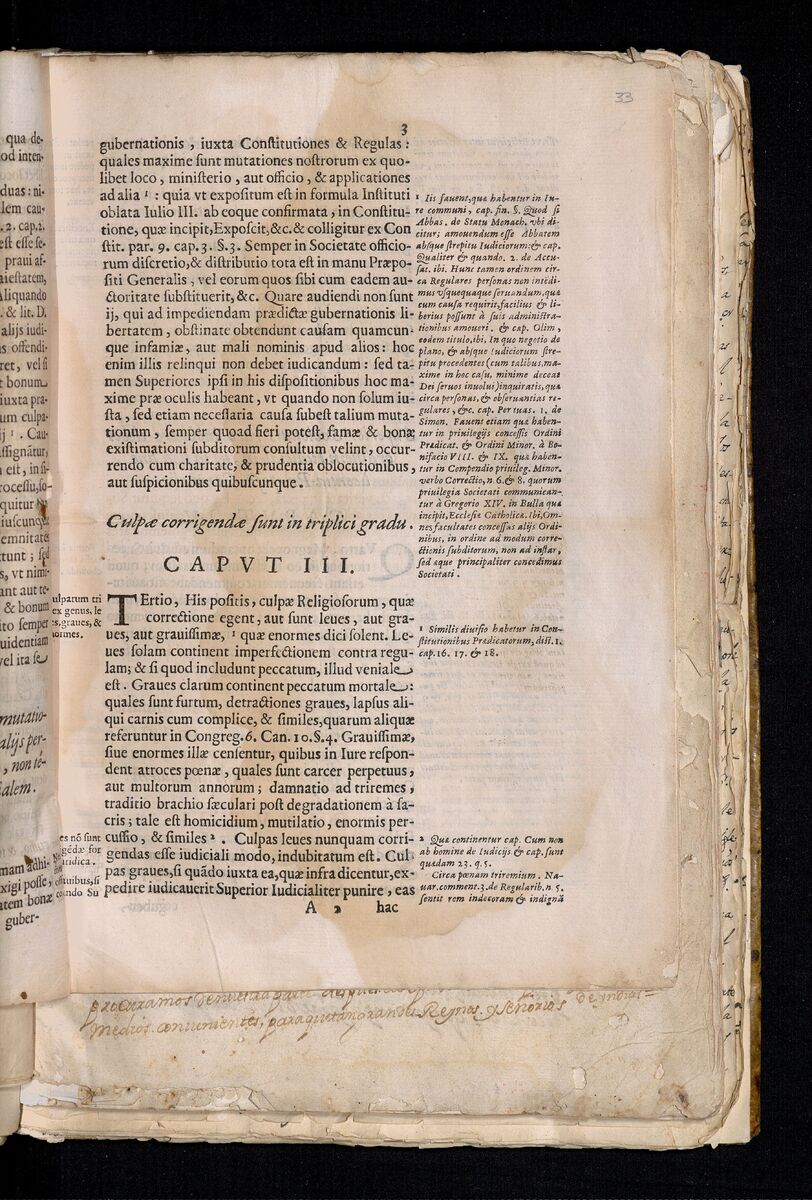 33
3
gubernationis, iuxta Constitutiones & Regulas:
quales maxime sunt mutationes nostrorum ex quo-
libet loco, ministerio, aut officio, & applicationes
ad alia ¹ : quia vt expositum est in formula Instituti
oblata Iulio III. ab eoque confirmata, in Constitu-
tione, quæ incipit, Exposcit, &c. & colligitur ex Con
stit. par. 9. cap. 3. §. 3. Semper in Societate officio-
rum discretio, & distributio tota est in manu Præpo-
siti Generalis, vel eorum quos sibi cum eadem au-
ctoritate substituerit, &c. Quare audiendi non sunt
ij, qui ad impediendam prædictæ gubernationis li-
bertatem, obstinate obtendunt causam quamcun-
que infamiæ, aut mali nominis apud alios: hoc
enim illis relinqui non debet iudicandum: sed ta-
men Superiores ipsi in his dispositionibus hoc ma-
xime præ oculis habeant, vt quando non solum iu-
sta, sed etiam necessaria causa subest talium muta-
tionum, semper quoad fieri potest, famæ & bonæ
existimationi subditorum consultum velint, occur-
rendo cum charitate, & prudentia oblocutionibus,
aut suspicionibus quibuscunque.
1 Iis fauent, quæ habentur in Iu-
re communi, cap. fin. §. Quod si
Abbas. de Statu Monach. vbi di-
citur; amouendum esse Abbatem
absque strepitu Iudiciorum: & cap.
Qualiter & quando. 2. de Accu-
sat. ibi. Hunc tamen ordinem cir-
ca Regulares personas non intedi-
mus vsquequaque seruandum, quæ
cum causa requirit, facilius & li-
berius possunt à suis administra-
tionibus amoueri. & cap. Olim,
eodem titulo, ibi, In quo negotio de
plano, & absque Iudiciorum stre-
pitu procedentes (cum talibus, ma-
xime in hoc casu, minime deceat
Dei seruos inuolui) inquiratis, quæ
circa personas, & obseruantias re-
gulares, &c. cap. Per tuas. 1. de
Simon. Fauent etiam quæ haben-
tur in priuilegijs concessis Ordini
Prædicat. & Ordini Minor. à Bo-
nifacio VIII. & IX. quæ haben-
tur in Compendio priuileg. Minor.
verbo Correctio, n. 6. & 8. quorum
priuilegia Societati communican-
tur à Gregorio XIV. in Bulla quæ
incipit, Ecclesiæ Catholicæ. Ibi, Om-
nes facultates concessas alijs Ordi-
nibus, in ordine ad modum corre-
ctionis subditorum, non ad instar,
sed æque principaliter concedimus
Societati.
Culpæ corrigendæ sunt in triplici gradu.
CAPVT III.
TErtio, His positis, culpæ Religiosorum, quæ
correctione egent, aut sunt leues, aut gra-
ues, aut grauissimæ, ¹ quæ enormes dici solent. Le-
ues solam continent imperfectionem contra regu-
lam; & si quod includunt peccatum, illud veniale
est. Graues clarum continent peccatum mortale:
quales sunt furtum, detractiones graues, lapsus ali-
qui carnis cum complice, & similes, quarum aliquæ
referuntur in Congreg. 6. Can. 10. §. 4. Grauissimæ,
siue enormes illæ censentur, quibus in Iure respon-
dent atroces pœnæ, quales sunt carcer perpetuus,
aut multorum annorum; damnatio ad triremes,
traditio brachio sæculari post degradationem à sa-
cris; tale est homicidium, mutilatio, enormis per-
cussio, & similes ². Culpas leues nunquam corri-
gendas esse iudiciali modo, indubitatum est. Cul
pas graues, si quãdo iuxta ea, quæ infra dicentur, ex-
pedire iudicauerit Superior Iudicialiter punire, eas
A 2 hac
ulparum tri
ex genus, le
es, graues, &
ormes.
es nõ sunt
1 Similis diuisio habetur in Con-
stitutionibus Prædicatorum, dist. 1.
cap. 16. 17. & 18.
2 Quæ continentur cap. Cum non
ab homine de Iudicijs & cap. sunt
quædam 23. q. 5.
Circa pœnam triremium. Na-
uar. comment. 3. de Regularib. n. 5.
sentit rem indecoram & indignã
qua de-
od inten-
duas: ni-
lem cau-
. 2. cap. 2.
est esse se-
praui af-
aiestatem,
Aliquando
. & lit. D.
alijs iudi-
is offendi-
ret, vel si
t bonum
iuxta pra-
um culpa-
Cau-
assignãtur,
est, in si-
rocessu, so-
quitur
iuscunq
emnitate
tunt; sed
s, vt nimi-
ant aut te-
& bonum
ito semper
uidentiam
vel ita se
mutatio-
alijs per-
, non te-
ialem.
mam adhi-
xigi posse,
tatem bonæ
guber-
procuramos
Medios conuenientes, para quietar Reynos. y señorios de indias